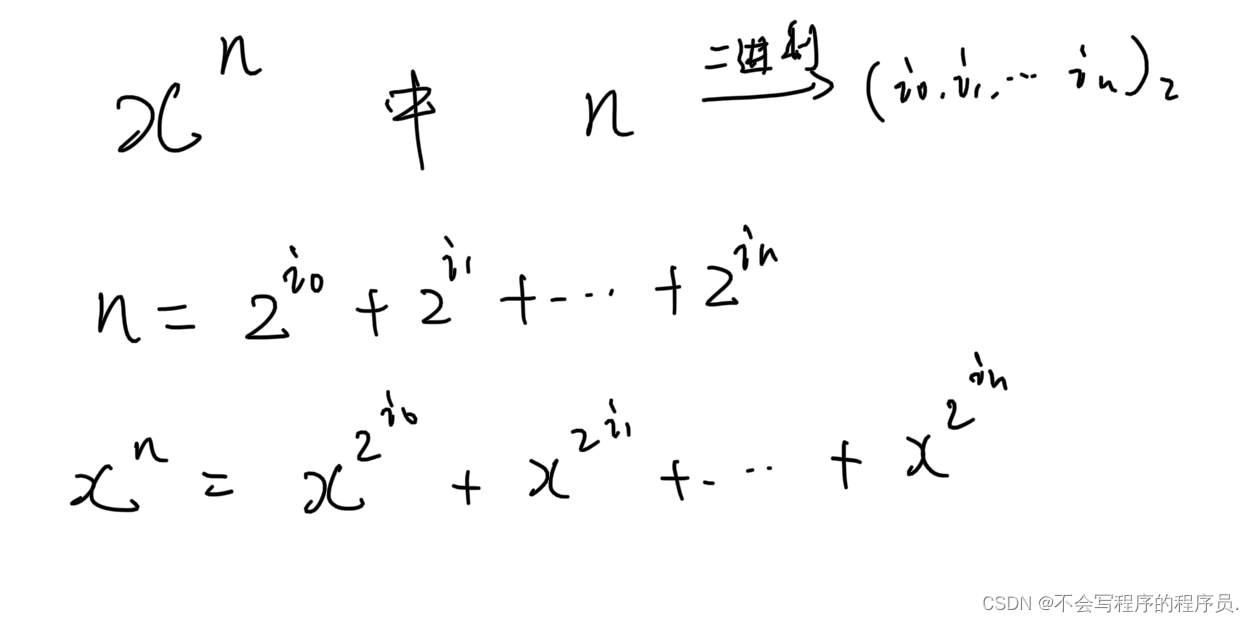 xⁿ 中 n 二进制→ (i₀, i₁, ⋯ iₙ)₂
n = 2^{i₀} + 2^{i₁} + ⋯ + 2^{iₙ}
xⁿ = x^{2^{i₀}} + x^{2^{i₁}} + ⋯ + x^{2^{iₙ}}
CSDN @不会写程序的程序员.